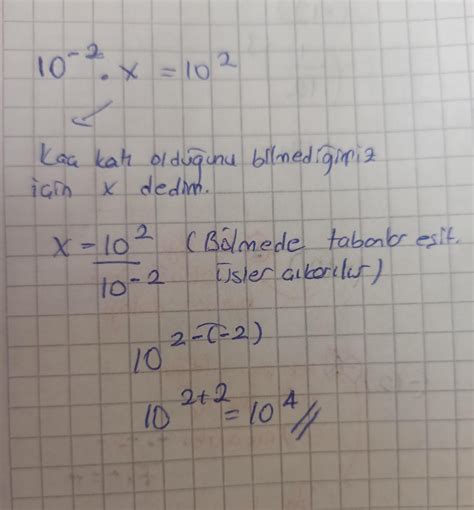 10⁻² . x = 10²
Kaç katı olduğunu bilmediğimiz
için x dedim.
x = 10² / 10⁻² (Bölmede tabanlar eşit.
Üsler çıkarılır)
10²⁻⁽⁻²⁾
10²⁺² = 10⁴ //